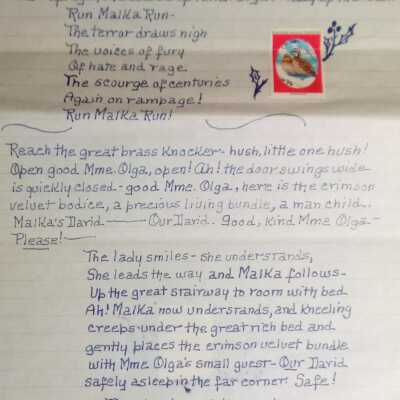 Run Malka Run-
The terror draws nigh
The voices of fury
Of hate and rage
The scourge of centuries
Again on rampage!
Run Malka Run!
Reach the great brass knocker- hush, little one hush!
Open good Mme. Olga, open! Ah! the door swings wide
is quickly closed - good Mme. Olga, here is the crimson
velvet bodice, a precious living bundle, a man child.
Malka's David —— Our David. Good, kind Mme Olga-
Please! —
The lady smiles - she understands,
She leads the way and Malka follows-
Up the great stairway to room with bed
Ah! Malka now understands, and kneeling
creeps under the great rich bed and
gently places the crimson velvet bundle
with Mme Olga's small guest - Our David
safely asleep in the far corner. Safe!